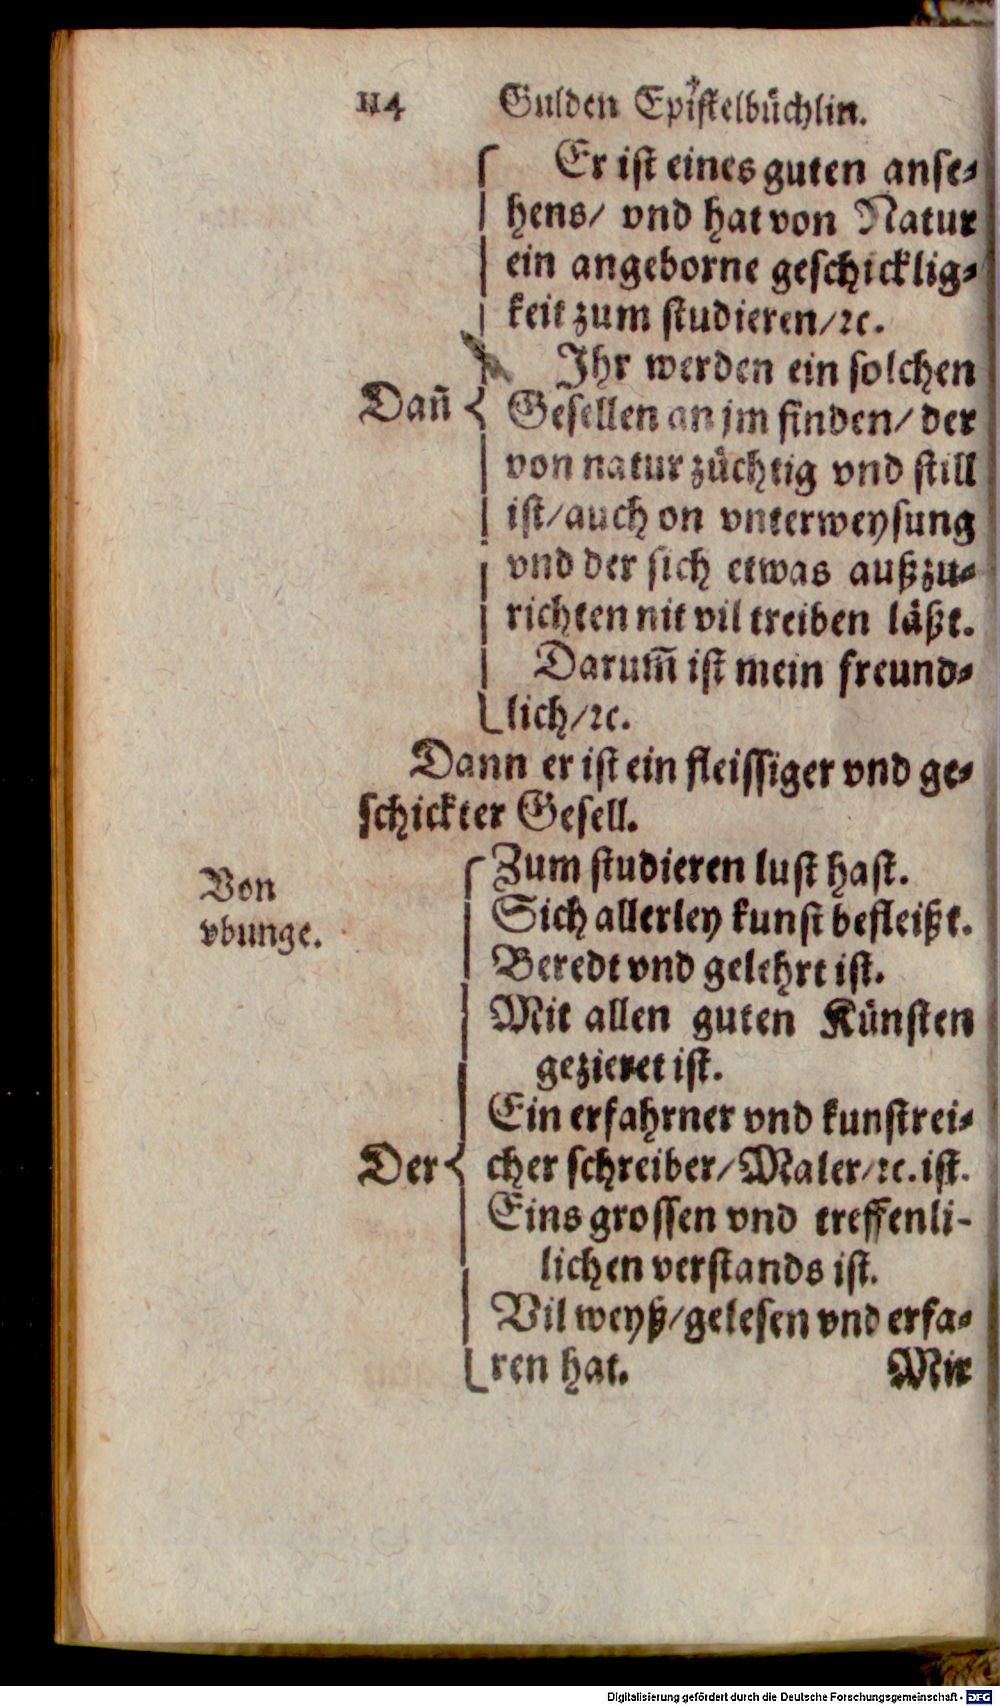 114 Gulden Epistelbüchlin.
Er ist eines guten anse-
hens/ vnd hat von Natur
ein angeborne geschicklig-
keit zum studieren/ꝛc.
Ihr werden ein solchen
Dañ Gesellen an jm finden/ der
von natur züchtig vnd still
ist/auch on vnterweysung
vnd der sich etwas außzu-
richten nit vil treiben läßt.
Darum̃ ist mein freund-
lich/ꝛc.
Dann er ist ein fleissiger vnd ge-
schickter Gesell.
Zum studieren lust hast.
Von
Sich allerley kunst befleißt.
vbunge.
Beredt vnd gelehrt ist.
Mit allen guten Künsten
gezieret ist.
Ein erfahrner vnd kunstrei-
Der cher schreiber/Maler/ꝛc. ist.
Eins grossen vnd treffenli-
lichen verstands ist.
Vil weyß/gelesen vnd erfa-
ren hat. Mit
Digitalisierung gefördert durch die Deutsche Forschungsgemeinschaft - DFG